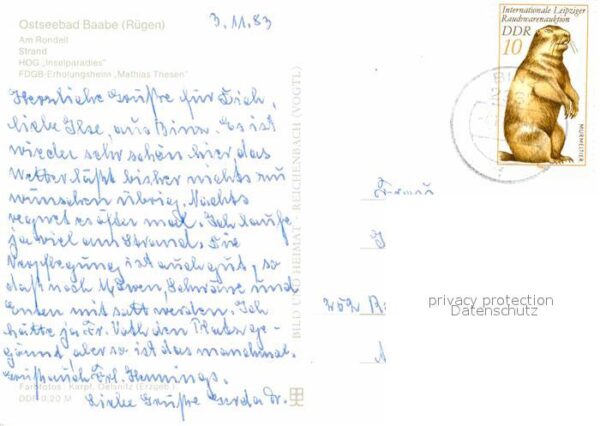 3.11.83
Ostseebad Baabe (Rügen)
Am Rondell
Strand
HOG „Inselparadies"
FDGB-Erholungsheim „Mathias Thesen"
Herrliche Grüße für Dich,
liebe Ilse, aus Binz. Es ist
wieder sehr schön hier, das
Wetter läßt bisher nichts zu
wünschen übrig. Nachts
regnet es öfter mal. Ich laufe
ja viel am Strand. Die
Verpflegung ist auch gut, so
daß noch Möwen, Schwäne und
Enten mit satt werden. Ich
hätte ja Fr. Voth den Platz ge-
gönnt, aber so ist das manchmal.
Grüß auch Frl. Hennings.
Liebe Grüße Gerda Dr.
Farbfotos: Karpf, Oelsnitz (Erzgeb.)
DDR 0,20 M
BILD UND HEIMAT · REICHENBACH (VOGTL)
Internationale Leipziger
Rauchwarenauktion
DDR
10
MURMELTIER
Frau
privacy protection
Datenschutz